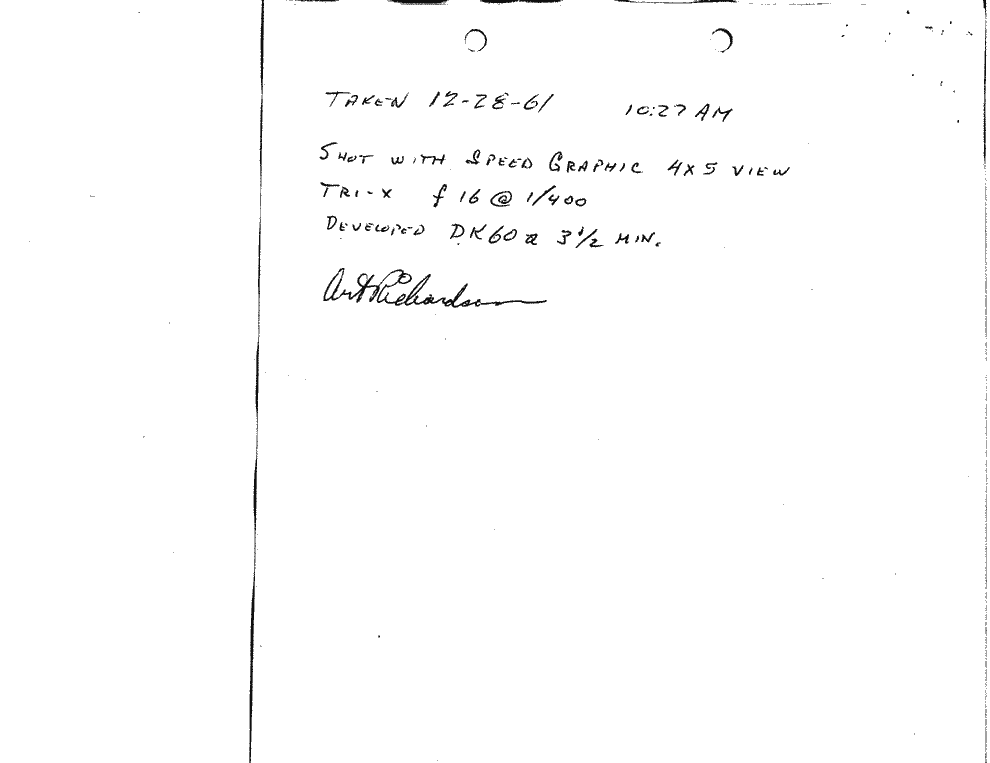 TAKEN 12-28-61 10:27 AM
SHOT WITH SPEED GRAPHIC 4X5 VIEW
TRI-X f 16 @ 1/400
DEVELOPED DK60a 3 1/2 MIN.
Art Richardson